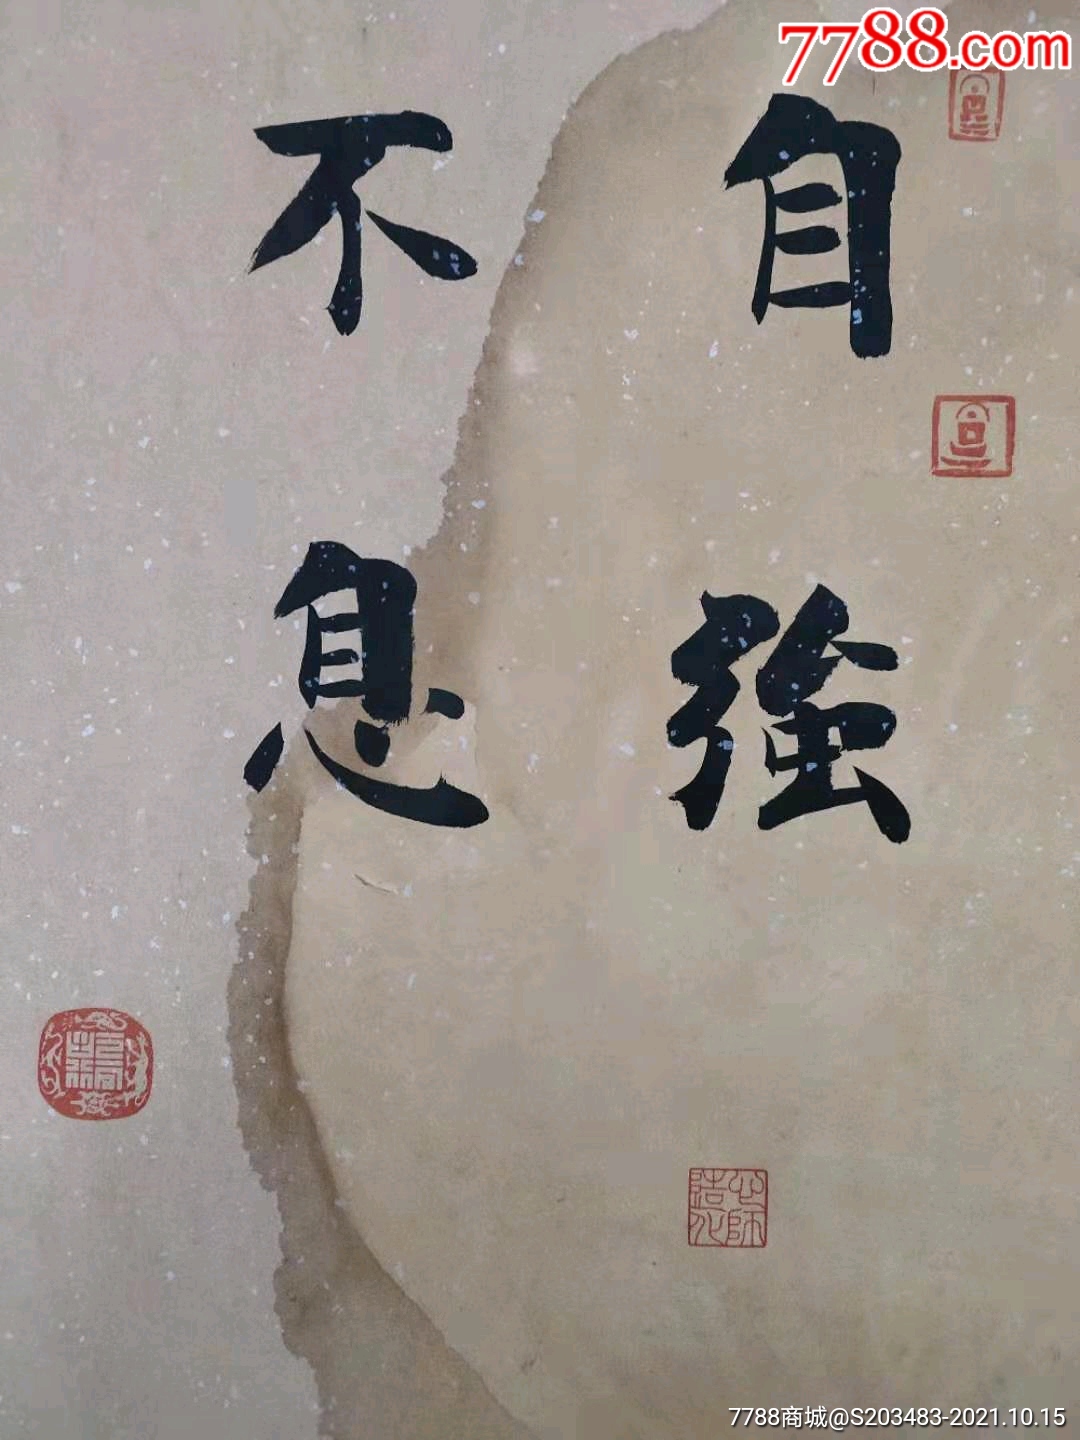 7788.com
自強
不息
心師造化
7788商城@S203483-2021.10.15